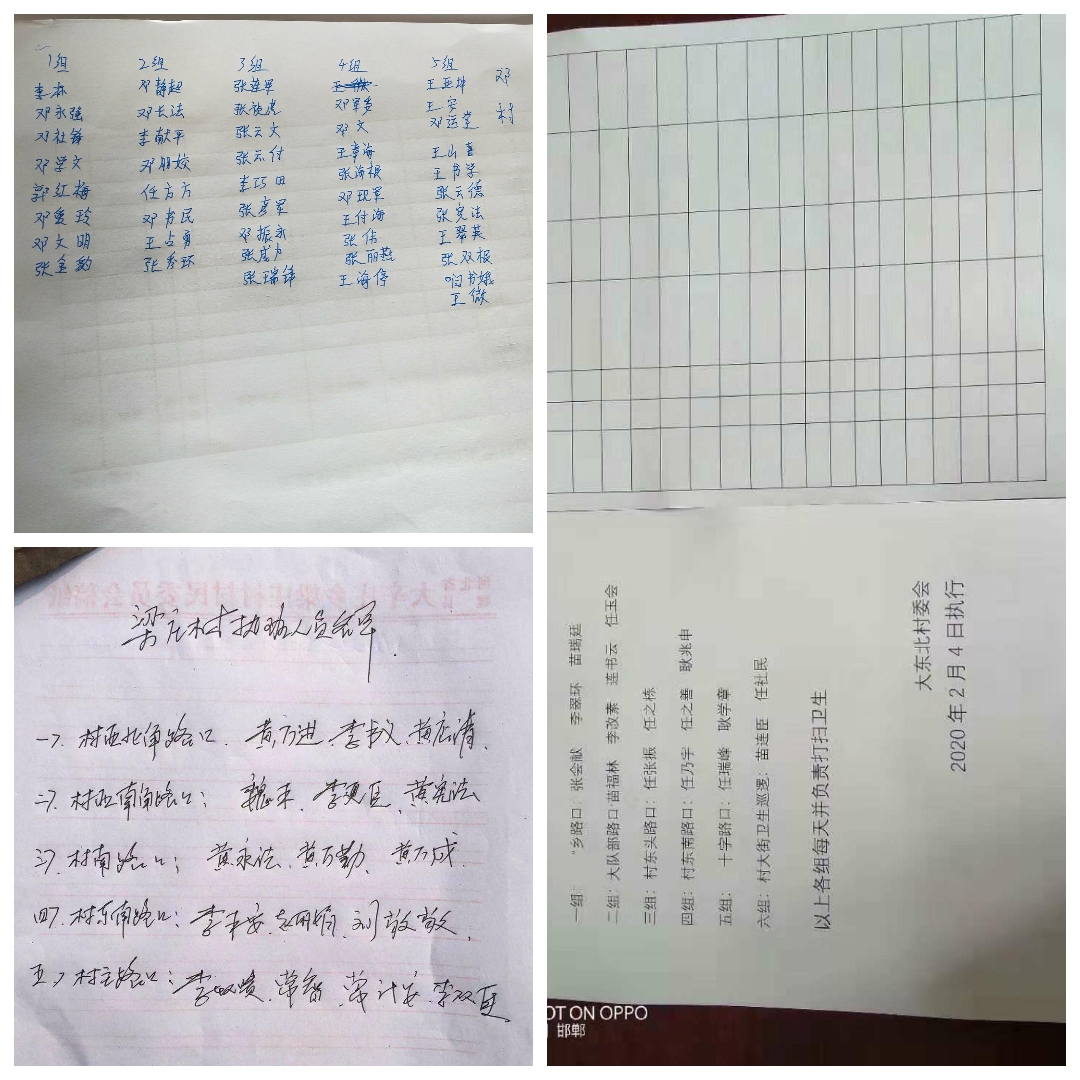 1组 2组 3组 4组 5组
李本 邓静起 张莲军 王亚坤 邓
邓永强 邓长法 张彼虎 邓军芳 王安 村
邓社锋 李献平 张云文 邓文 邓运堂
邓学文 邓朋姣 张云付 王章海 王山喜
郭红梅 任方方 李巧田 张海根 王书学
邓爱玲 邓方民 张彦军 邓现军 张云德
邓文明 王占勇 邓振永 王付海 张宪法
张金豹 张秀环 张成力 张伟 王翠英
张瑞锋 张丽燕 张双根
王海停 书娥
王微
梁庄村执勤人员名单
一、村西北角路口、黄方进、李书义、黄启清、
二、村西南角路口： 魏来、李更臣、黄宪法
三、村南路口： 黄永法、黄万勤、黄万成
四、村东南路口：李来安、刘敬敬、
五、村主路口： 李双臣
一组： "乡路口：张会献 李翠环 苗瑞廷
二组：大队部路口 苗福林 李改素 连书云 任玉会
三组：村东头路口：任张振 任之栋
四组：村东南路口：任乃宇 任之善 耿兆申
五组： 十字路口：任瑞峰 耿学章
六组：村大街卫生巡逻：苗连臣 任社民
以上各组每天并负责打扫卫生
大东北村委会
2020年2月4日执行
OT ON OPPO
邯郸